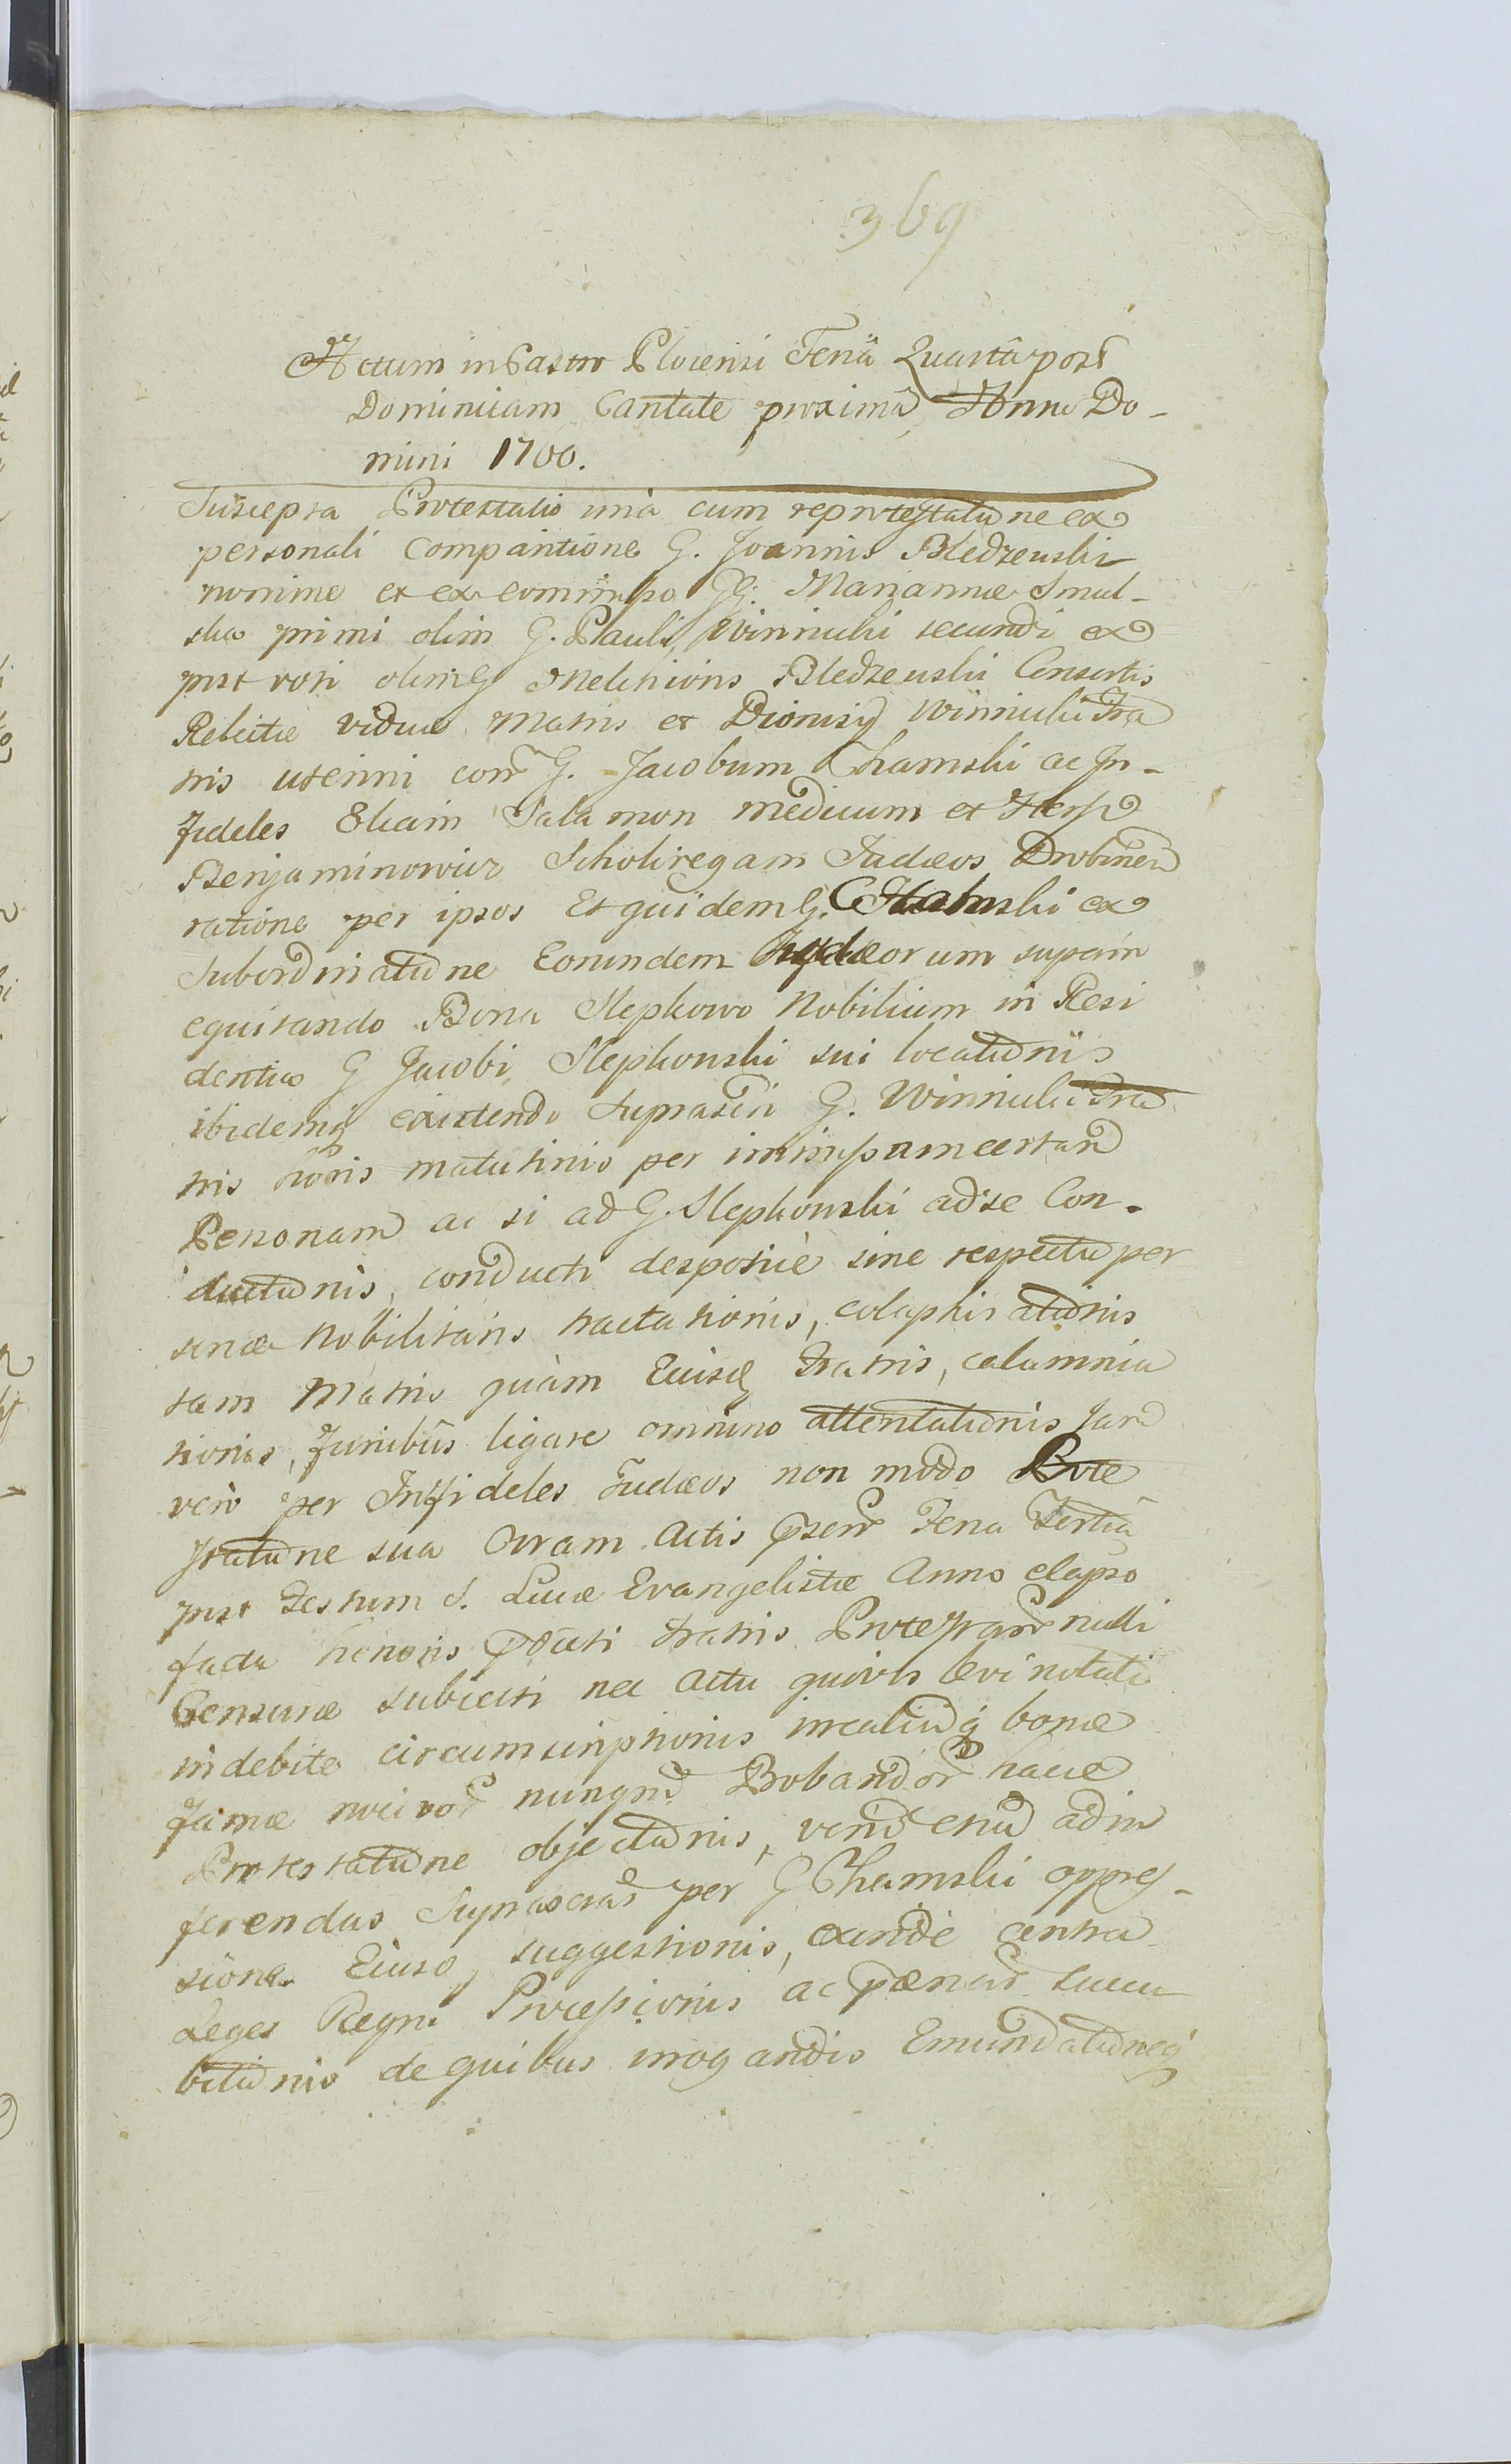 369
Actum in Castro Plocensi Feriâ Quartâ post
Dominicam Cantate proximâ Anno Do-
mini 1700.
Suscepta Protestatio unà cum reprotestatione ex
personali Comparitione G. Joannis Bledzewski
nomine et ex commisso GG. Mariannæ Smul-
skæ primi olim G. Pauli Winnicki secundi ex
post voti olim G Melchioris Bledzewski Consortis
Relictæ viduæ Matris et Dionisÿ Winnicki Fra
tris uterini con G. Jacobum Chamski ac In-
fideles Eliam Salamon medicum et Hersz
Benjaminowicz Scholiregam Judæos Drobinen
ratione per ipsos Et quidem G. Chamski ex
Subordinatione Eorundem Judæorum superin
equitando Bona Slepkowo Nobilium in Resi
dentia G Jacobi Slepkowski sui locationis
ibidemq existendo Suprascri G. Winnicki Fra
tris horis matutinis per immissam certam
Personam ac si ad G. Slepkowski ad se Con-
ductionis, conducti despoticè sine respectu per
sonæ Nobilitaris tractationis, colaphisationis
tam Matris quàm Eiusd Fratris, calumnia
tionis, funibûs ligare omnino attentationis Jam
vero per Infideles Judæos non modo Prote
statione sua Coram Actis psen Feria Tertiâ
post Festum S. Lucæ Evangelistæ Anno elapso
facta honoris pdicti Fratris Protestan nulli
Censuræ subiecti nec Actu quovis levi notati
indebite circumscriptionis inaliudq bonæ
famæ nocivor nunqm Probandor hacce
Protestatione objectionis, verum etiam ad in
ferendas Suprascras per G Chamski oppres-
siones Eiusq suggestionis, exindè contra
Leges Regni Processionis ac pænar succu
bitionis de quibus irrogandis Emundationeq